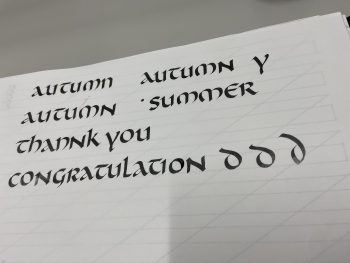 autumn autumn y
autumn summer
thannk you
congratulation d d d